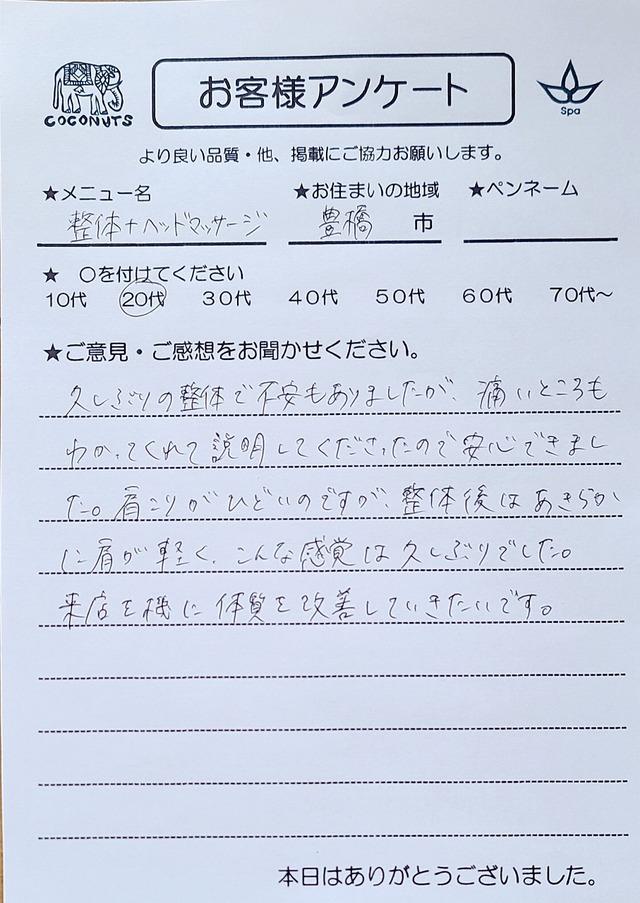 COCONUTS
お客様アンケート
Spa
より良い品質・他、掲載にご協力お願いします。
★メニュー名 ★お住まいの地域 ★ペンネーム
整体+ヘッドマッサージ 豊橋 市
★ 〇を付けてください
10代 20代 30代 40代 50代 60代 70代~
★ご意見・ご感想をお聞かせください。
久しぶりの整体で不安もありましたが、痛いところも
わかってくれて説明してくださったので安心できまし
た。肩こりがひどいのですが、整体後はあきらか
に肩が軽く、こんな感覚は久しぶりでした。
来店を機に体質を改善していきたいです。
本日はありがとうございました。